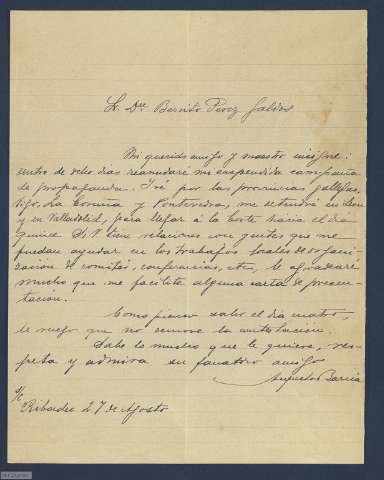 Sr. Dn. Benito Pérez Galdós
Mi querido amigo y maestro insigne:
dentro de ocho días reanudaré mi suspendida campaña
de propaganda. Iré por las provincias gallegas,
Vigo, La Coruña y Pontevedra, me detendré en León
y en Valladolid, para llegar á la Corte hacia el día
quince. Si V. tiene relaciones con gentes que me
puedan ayudar en los trabajos locales de organi-
zación de comités, conferencias, etc., le agradeceré
mucho que me facilite alguna carta de presen-
tación.
Como pienso salir el día cuatro,
le ruego que no demore la contestación.
Sabe lo mucho que le quiere, res-
peta y admira su fanático amigo
Augusto Barcia
S/c
Ribadeo 27 de Agosto